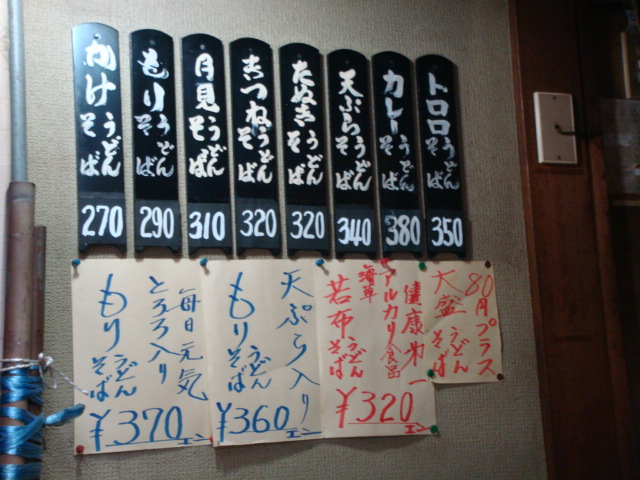 かけ
うどん
そば
270
もり
うどん
そば
290
月見
うどん
そば
310
きつね
うどん
そば
320
たぬき
うどん
そば
320
天ぷら
うどん
そば
340
カレー
うどん
そば
380
トロロ
うどん
そば
350
毎日元気
とろろ入り
もり
うどん
そば
¥370エン
天ぷら入り
もり
うどん
そば
¥360エン
健康第一
アルカリ食品
海草
若布
うどん
そば
¥320エン
80円プラス
大盛
うどん
そば